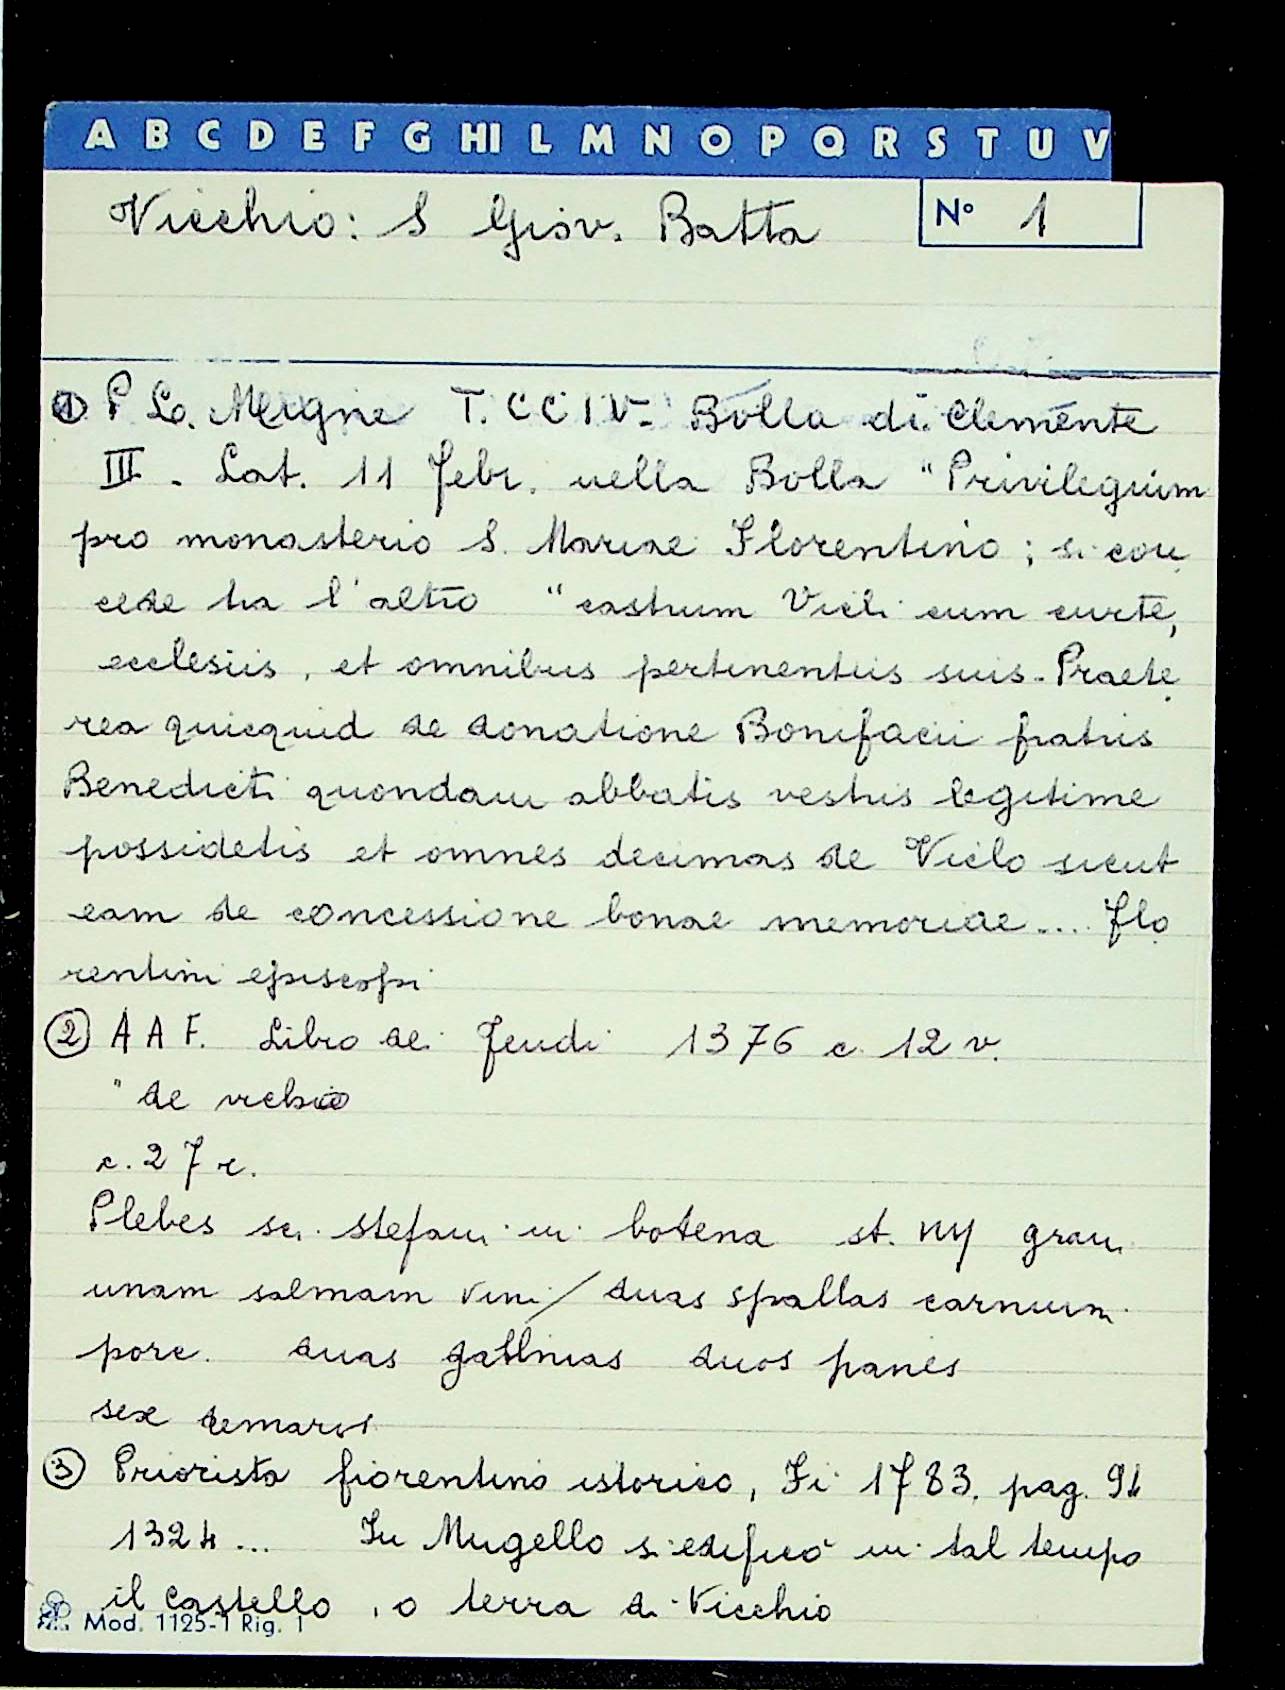 A B C D E F G HI L M N O P Q R S T U V
Vicchio: S Giov. Batta
N° 1
① P L. Migne T. CCIV. Bolla di Clemente
III. Lat. 11 febr. nella Bolla "Privilegium
pro monasterio S. Mariae Florentino; si con
cede tra l'altro "castrum Vicli cum curte,
ecclesiis, et omnibus pertinentiis suis. Praete
rea quicquid de donatione Bonifacii fratris
Benedicti quondam abbatis vestris legitime
possidetis et omnes decimas de Viclo sicut
eam de concessione bonae memoriae.... flo
rentini episcopi
② AAF. Libro dei feudi 1376 c. 12 v.
" de vichio
c. 27 r.
Plebes sci. stefani in botena st. grani
unam salmam vini/ duas spallas carnium
porc. duas gallinas duos panes
sex
③ Priorista fiorentino istorico, Fi 1783. pag. 94
1324... In Mugello si edificò in tal tempo
il castello, o terra di Vicchio
Mod. 1125-1 Rig. 1